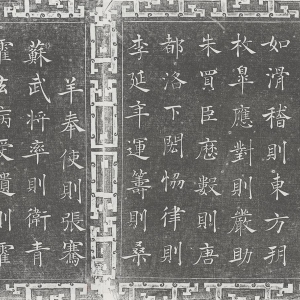 如滑稽則東方朔
枚臯應對則嚴助
朱買臣厯數則唐
都洛下閎恊律則
李延年運籌則桑
羊奉使則張騫
蘇武將率則衛青
霍去病受遺則霍